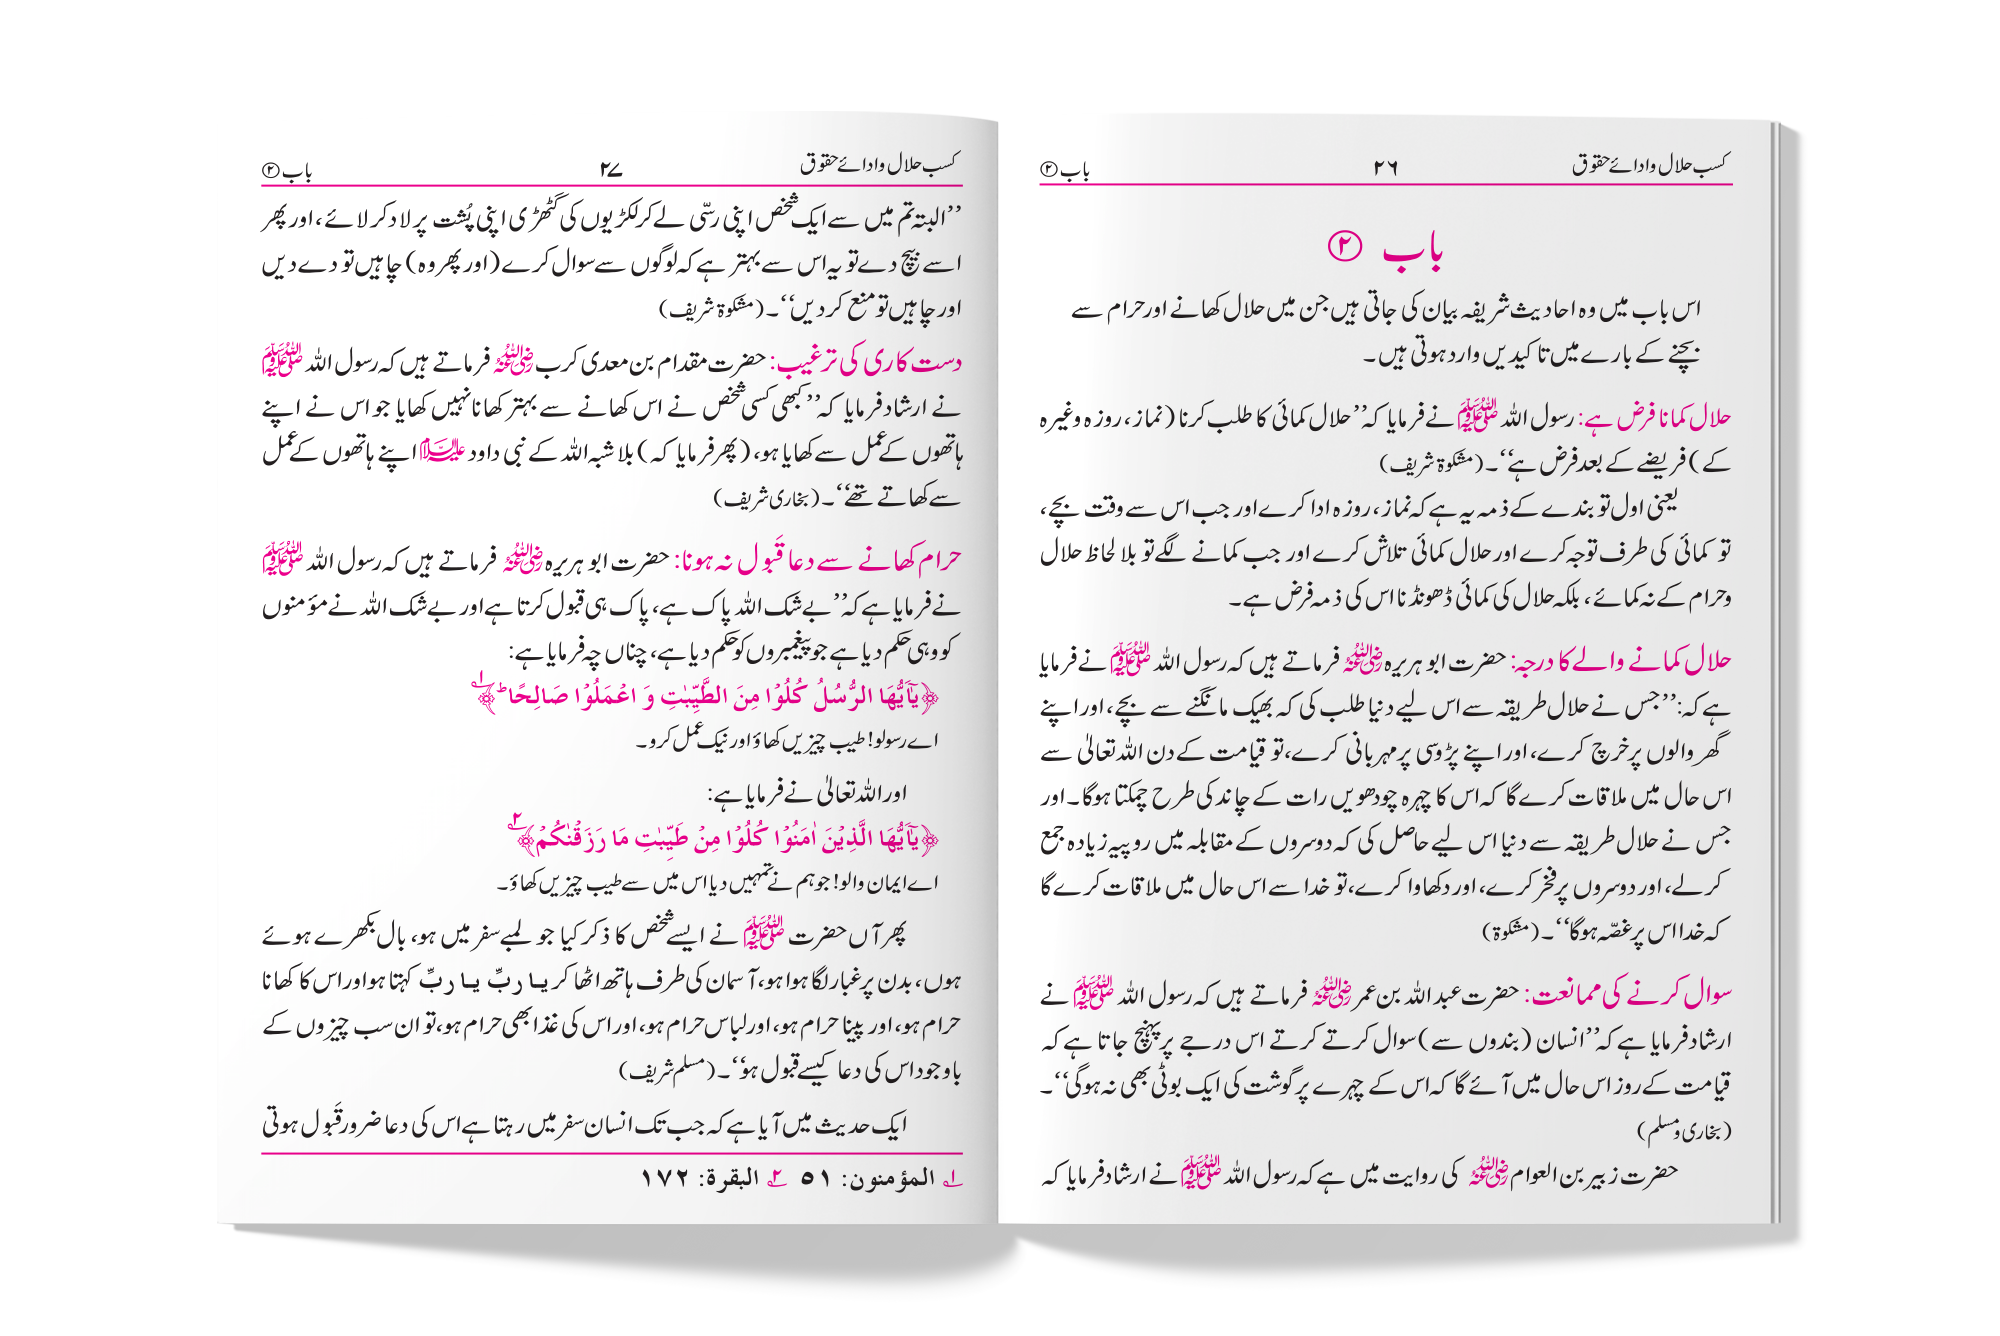 کسب حلال و ادائے حقوق ۲۶ باب ②
باب ②
اس باب میں وہ احادیث شریفہ بیان کی جاتی ہیں جن میں حلال کھانے اور حرام سے
بچنے کے بارے میں تاکیدیں وارد ہوتی ہیں۔
حلال کمانا فرض ہے: رسول اللہ ﷺ نے فرمایا کہ ’’حلال کمائی کا طلب کرنا (نماز، روزہ وغیرہ
کے) فریضے کے بعد فرض ہے‘‘۔ (مشکوٰۃ شریف)
یعنی اول تو بندے کے ذمہ یہ ہے کہ نماز، روزہ ادا کرے اور جب اس سے وقت بچے،
تو کمائی کی طرف توجہ کرے اور حلال کمائی تلاش کرے اور جب کمانے لگے تو بلا لحاظ حلال
وحرام کے نہ کمائے، بلکہ حلال کی کمائی ڈھونڈنا اس کی ذمہ فرض ہے۔
حلال کمانے والے کا درجہ: حضرت ابو ہریرہ رضی اللہ عنہ فرماتے ہیں کہ رسول اللہ ﷺ نے فرمایا
ہے کہ: ’’جس نے حلال طریقہ سے اس لیے دنیا طلب کی کہ بھیک مانگنے سے بچے، اور اپنے
گھر والوں پر خرچ کرے، اور اپنے پڑوسی پر مہربانی کرے، تو قیامت کے دن اللہ تعالیٰ سے
اس حال میں ملاقات کرے گا کہ اس کا چہرہ چودھویں رات کے چاند کی طرح چمکتا ہوگا۔ اور
جس نے حلال طریقہ سے دنیا اس لیے حاصل کی کہ دوسروں کے مقابلہ میں روپیہ زیادہ جمع
کرلے، اور دوسروں پر فخر کرے، اور دکھاوا کرے، تو خدا سے اس حال میں ملاقات کرے گا
کہ خدا اس پر غصّہ ہوگا‘‘۔ (مشکوٰۃ)
سوال کرنے کی ممانعت: حضرت عبد اللہ بن عمر رضی اللہ عنہ فرماتے ہیں کہ رسول اللہ ﷺ نے
ارشاد فرمایا ہے کہ ’’انسان (بندوں سے) سوال کرتے کرتے اس درجے پر پہنچ جاتا ہے کہ
قیامت کے روز اس حال میں آئے گا کہ اس کے چہرے پر گوشت کی ایک بوٹی بھی نہ ہوگی‘‘۔
(بخاری ومسلم)
حضرت زبیر بن العوام رضی اللہ عنہ کی روایت میں ہے کہ رسول اللہ ﷺ نے ارشاد فرمایا کہ
کسب حلال و ادائے حقوق ۲۷ باب ②
’’البتہ تم میں سے ایک شخص اپنی رسّی لے کر لکڑیوں کی گٹھڑی اپنی پُشت پر لاد کر لائے، اور پھر
اسے بیچ دے تو یہ اس سے بہتر ہے کہ لوگوں سے سوال کرے (اور پھر وہ) چاہیں تو دے دیں
اور چاہیں تو منع کردیں‘‘۔ (مشکوٰۃ شریف)
دست کاری کی ترغیب: حضرت مقدام بن معدی کرب رضی اللہ عنہ فرماتے ہیں کہ رسول اللہ ﷺ
نے ارشاد فرمایا کہ ’’کبھی کسی شخص نے اس کھانے سے بہتر کھانا نہیں کھایا جو اس نے اپنے
ہاتھوں کے عمل سے کھایا ہو، (پھر فرمایا کہ) بلا شبہ اللہ کے نبی داود علیہ السلام اپنے ہاتھوں کے عمل
سے کھاتے تھے‘‘۔ (بخاری شریف)
حرام کھانے سے دعا قَبول نہ ہونا: حضرت ابو ہریرہ رضی اللہ عنہ فرماتے ہیں کہ رسول اللہ ﷺ
نے فرمایا ہے کہ ’’بے شک اللہ پاک ہے، پاک ہی قبول کرتا ہے اور بے شک اللہ نے مؤمنوں
کو وہی حکم دیا ہے جو پیغمبروں کو حکم دیا ہے، چناں چہ فرمایا ہے:
﴿يٰٓاَيُّهَا الرُّسُلُ كُلُوْا مِنَ الطَّيِّبٰتِ وَ اعْمَلُوْا صَالِحًا ؕ﴾ ۱
اے رسولو! طیب چیزیں کھاؤ اور نیک عمل کرو۔
اور اللہ تعالیٰ نے فرمایا ہے:
﴿يٰٓاَيُّهَا الَّذِيْنَ اٰمَنُوْا كُلُوْا مِنْ طَيِّبٰتِ مَا رَزَقْنٰكُمْ﴾ ۲
اے ایمان والو! جو ہم نے تمہیں دیا اس میں سے طیب چیزیں کھاؤ۔
پھر آں حضرت ﷺ نے ایسے شخص کا ذکر کیا جو لمبے سفر میں ہو، بال بکھرے ہوئے
ہوں، بدن پر غبار لگا ہوا ہو، آسمان کی طرف ہاتھ اٹھا کر یا ربِّ یا ربِّ کہتا ہو اور اس کا کھانا
حرام ہو، اور پینا حرام ہو، اور لباس حرام ہو، اور اس کی غذا بھی حرام ہو، تو ان سب چیزوں کے
باوجود اس کی دعا کیسے قبول ہو‘‘۔ (مسلم شریف)
ایک حدیث میں آیا ہے کہ جب تک انسان سفر میں رہتا ہے اس کی دعا ضرور قَبول ہوتی
۱ المؤمنون: ٥١ ۲ البقرة: ١٧٢